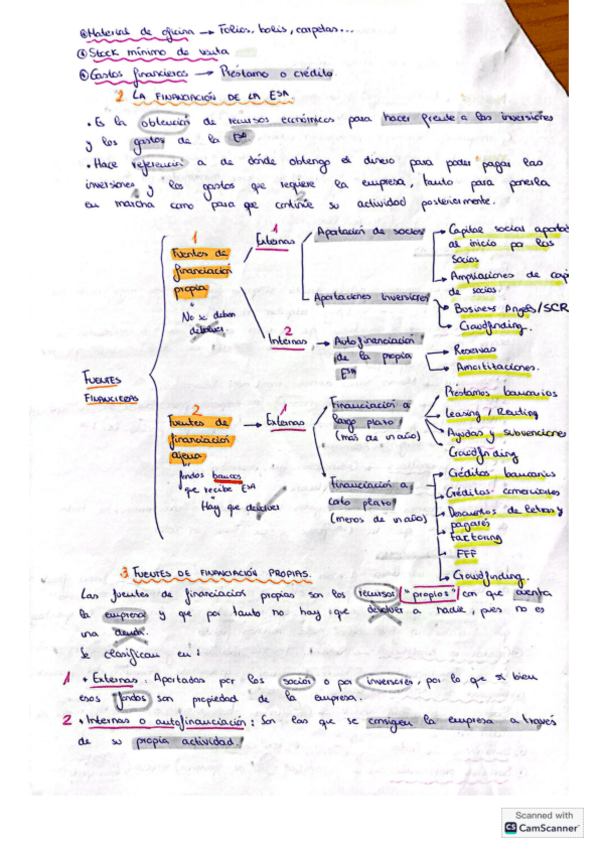 ⑧Material de oficina → Folios, bolis, carpetas...
⑨Stock mínimo de venta
⑩Gastos financieros → Préstamo o crédito
2. LA FINANCIACIÓN DE LA ESA.
• Es la obtención de recursos económicos para hacer frente a las inversiones
y los gastos de la ESA
• Hace referencia a de dónde obtengo el dinero para poder pagar las
inversiones y los gastos que requiere la empresa, tanto para ponerla
en marcha como para que continúe su actividad posteriormente.
FUENTES
FINANCIERAS
1
Fuentes de
financiación
propia
No se deben
devolver
1
Externas
Aportación de socios
Capital social aportad
al inicio por los
socios
Ampliaciones de cap
de socios.
Aportaciones Inversores
Business Angels/SCR
Crowdfunding.
2
Internas
Autofinanciación
de la propia
ESA
Reservas
Amortitaciones.
2
Fuentes de
financiación
ajena
fondos
que recibe ESA
Hay que devolver
1
Externas
Financiación a
largo plazo
(más de un año)
Préstamos bancarios
Leasing / Renting
Ayudas y subvenciones
Crowdfunding
Financiación a
corto plazo
(menos de un año)
Créditos bancarios
Créditos comerciales
Descuentos de letras y
pagarés
Factoring
FFF
Crowdfunding.
3 FUENTES DE FINANCIACIÓN PROPIAS.
Las fuentes de financiación propias son los recursos "propios" con que cuenta
la empresa y que por tanto no hay que devolver a nadie, pues no es
una deuda.
Se clasifican en:
1 • Externas: Aportadas por los socios o por inversores, por lo que si bien
esos fondos son propiedad de la empresa.
2 • Internas o autofinanciación: Son las que se consiguen la empresa a través
de su propia actividad.
Scanned with
CS CamScanner